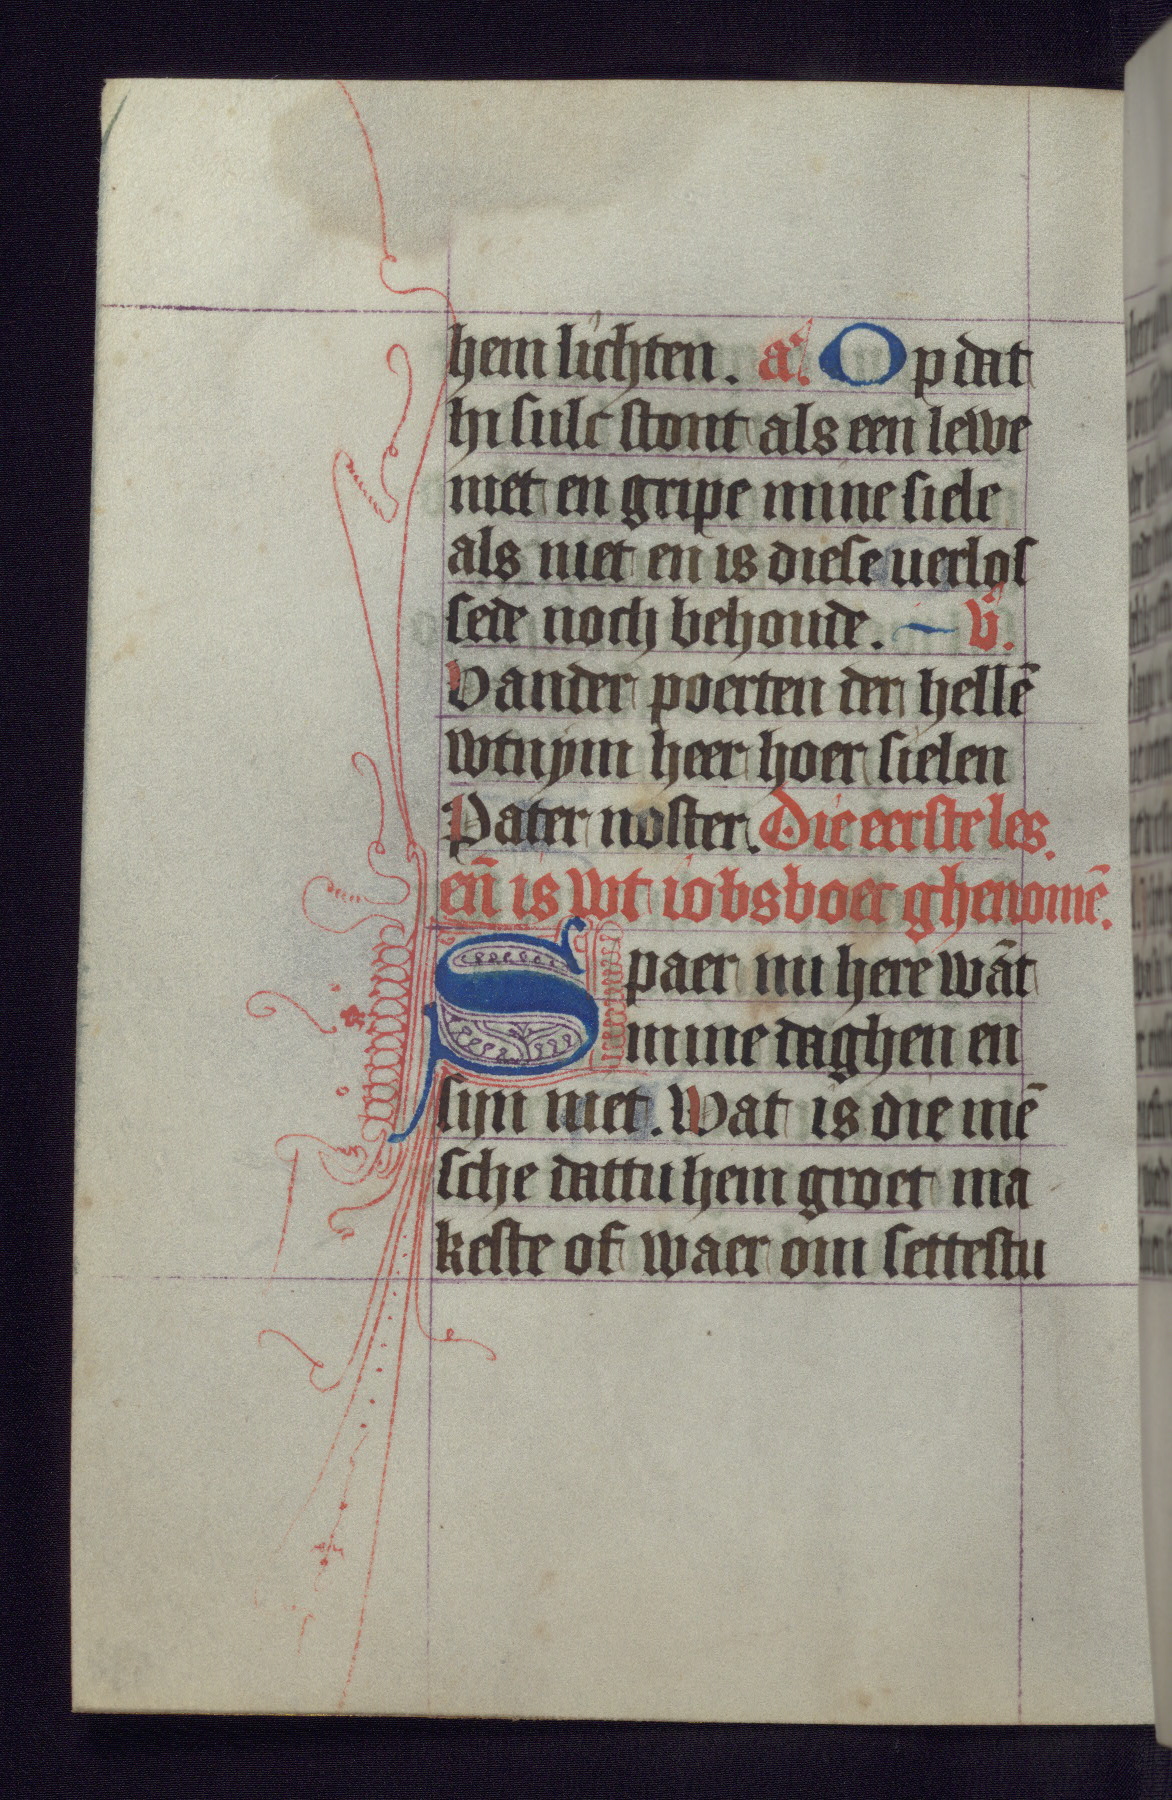 hem lichten. a. Op dat
hi sulc stont als een lewe
niet en gripe mine siele
als niet en is diese uerlos
sede noch behoude. v̄.
Vander poerten der hellē
wtnym heer hoer sielen
Pater noster. Die eerste les.
en̄ is wt iobs boec ghenomē.
Spaer mi here wāt
mine daghen en
sijn niet. Wat is die mē
sche dattu hem groet ma
keste of waer om settestu